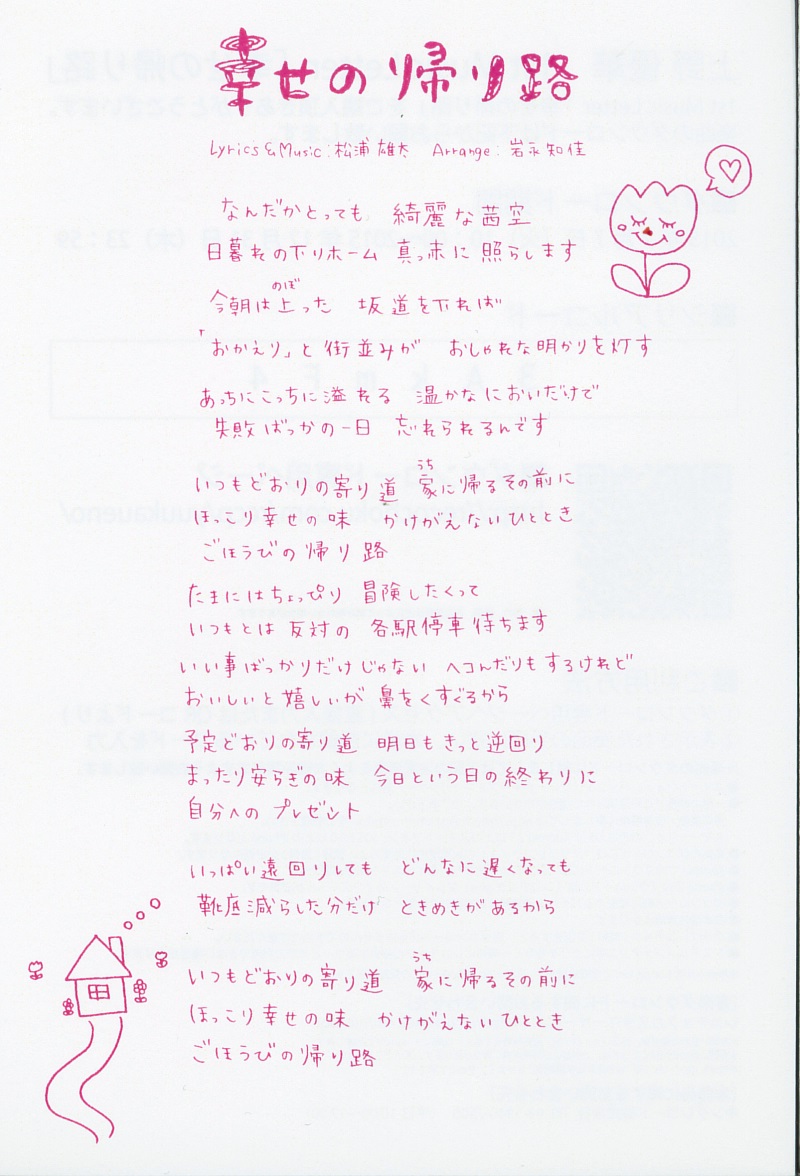 幸せの帰り路
Lyrics&Music:松浦雄太 Arrange:岩永知佳
なんだかとっても 綺麗な茜空
日暮れの下りホーム 真っ赤に照らします
のぼ
今朝は上った 坂道を下れば
「おかえり」と街並みが おしゃれな明かりを灯す
あっちにこっちに溢れる 温かなにおいだけで
失敗ばっかの一日 忘れられるんです
うち
いつもどおりの寄り道 家に帰るその前に
ほっこり幸せの味 かけがえないひととき
ごほうびの帰り路
たまにはちょっぴり 冒険したくって
いつもとは反対の 各駅停車待ちます
いい事ばっかりだけじゃない ヘコんだりもするけれど
おいしいと嬉しいが 鼻をくすぐるから
予定どおりの寄り道 明日もきっと逆回り
まったり安らぎの味 今日という日の終わりに
自分へのプレゼント
いっぱい遠回りしても どんなに遅くなっても
靴底減らした分だけ ときめきがあるから
うち
いつもどおりの寄り道 家に帰るその前に
ほっこり幸せの味 かけがえないひととき
ごほうびの帰り路